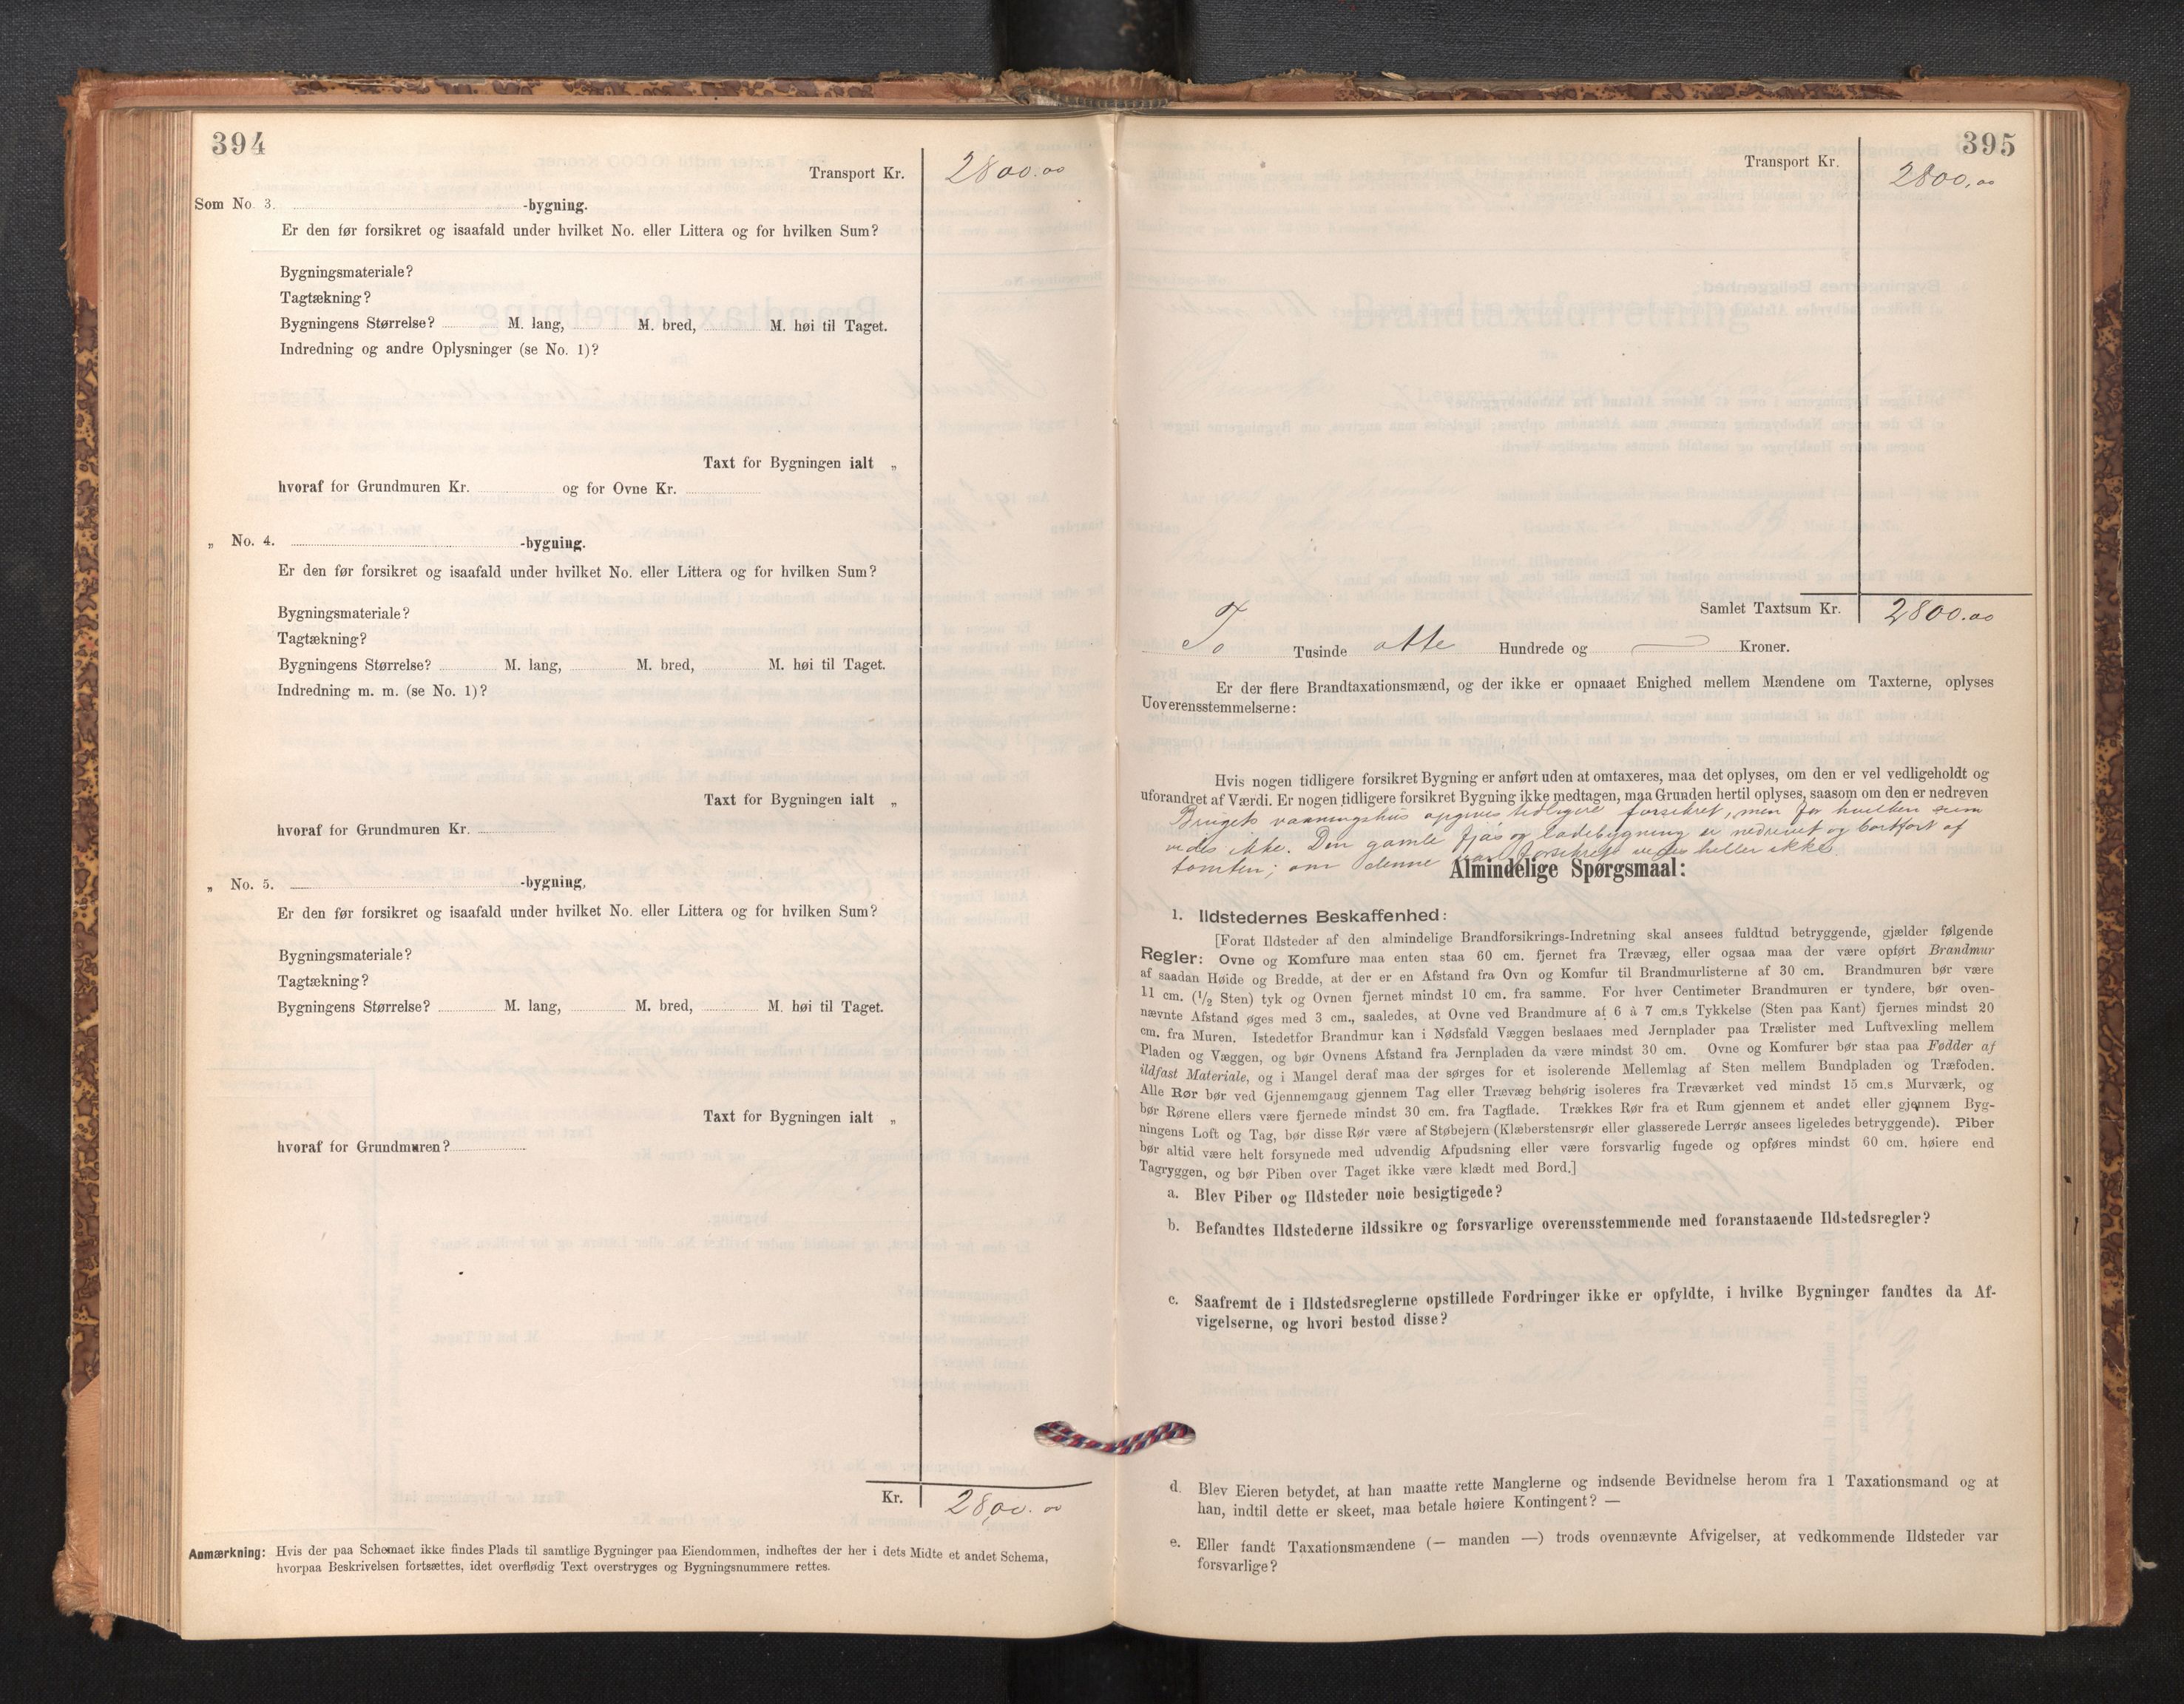 394
Transport Kr. 2800.00
Som No. 3. -bygning.
Er den før forsikret og isaafald under hvilket No. eller Littera og for hvilken Sum?
Bygningsmateriale?
Tagtækning?
Bygningens Størrelse? M. lang, M. bred, M. høi til Taget.
Indredning og andre Oplysninger (se No. 1)?
Taxt for Bygningen ialt „
hvoraf for Grundmuren Kr. og for Ovne Kr.
„ No. 4. -bygning.
Er den før forsikret og isaafald under hvilket No. eller Littera og for hvilken Sum?
Bygningsmateriale?
Tagtækning?
Bygningens Størrelse? M. lang, M. bred, M. høi til Taget.
Indredning m. m. (se No. 1)?
Taxt for Bygningen ialt „
hvoraf for Grundmuren Kr.
„ No. 5. -bygning,
Er den før forsikret og isaafald under hvilket No. eller Littera og for hvilken Sum?
Bygningsmateriale?
Tagtækning?
Bygningens Størrelse? M. lang, M. bred, M. høi til Taget.
Taxt for Bygningen ialt „
hvoraf for Grundmuren?
Kr. 2800.00
Anmærkning: Hvis der paa Schemaet ikke findes Plads til samtlige Bygninger paa Eiendommen, indheftes der her i dets Midte et andet Schema,
hvorpaa Beskrivelsen fortsættes, idet overflødig Text overstryges og Bygningsnummere rettes.
395
Transport Kr. 2800,00
Samlet Taxtsum Kr. 2800.00
To Tusinde otte Hundrede og — Kroner.
Er der flere Brandtaxationsmænd, og der ikke er opnaaet Enighed mellem Mændene om Taxterne, oplyses
Uoverensstemmelserne:
Hvis nogen tidligere forsikret Bygning er anført uden at omtaxeres, maa det oplyses, om den er vel vedligeholdt og
uforandret af Værdi. Er nogen tidligere forsikret Bygning ikke medtagen, maa Grunden hertil oplyses, saasom om den er nedreven
Brugets vaaningshus opgives tidligere forsikret, men for hvilken sum
vides ikke. Den gamle fjøs og ladebygning er nedrevet og bortført af
tomten; om denne var forsikret vides heller ikke.
Almindelige Spørgsmaal:
1. Ildstedernes Beskaffenhed:
[Forat Ildsteder af den almindelige Brandforsikrings-Indretning skal ansees fuldtud betryggende, gjælder følgende
Regler: Ovne og Komfure maa enten staa 60 cm. fjernet fra Trævæg, eller ogsaa maa der være opført Brandmur
af saadan Høide og Bredde, at der er en Afstand fra Ovn og Komfur til Brandmurlisterne af 30 cm. Brandmuren bør være
11 cm. (1/2 Sten) tyk og Ovnen fjernet mindst 10 cm. fra samme. For hver Centimeter Brandmuren er tyndere, bør oven-
nævnte Afstand øges med 3 cm., saaledes, at Ovne ved Brandmure af 6 à 7 cm.s Tykkelse (Sten paa Kant) fjernes mindst 20
cm. fra Muren. Istedetfor Brandmur kan i Nødsfald Væggen beslaaes med Jernplader paa Trælister med Luftvexling mellem
Pladen og Væggen, og bør Ovnens Afstand fra Jernpladen da være mindst 30 cm. Ovne og Komfurer bør staa paa Fødder af
ildfast Materiale, og i Mangel deraf maa der sørges for et isolerende Mellemlag af Sten mellem Bundpladen og Træfoden.
Alle Rør bør ved Gjennemgang gjennem Tag eller Trævæg behørig isoleres fra Træværket ved mindst 15 cm.s Murværk, og
bør Rørene ellers være fjernede mindst 30 cm. fra Tagflade. Trækkes Rør fra et Rum gjennem et andet eller gjennem Byg-
ningens Loft og Tag, bør disse Rør være af Støbejern (Klæberstensrør eller glasserede Lerrør ansees ligeledes betryggende). Piber
bør altid være helt forsynede med udvendig Afpudsning eller være forsvarlig fugede og opføres mindst 60 cm. høiere end
Tagryggen, og bør Piben over Taget ikke være klædt med Bord.]
a. Blev Piber og Ildsteder nøie besigtigede?
b. Befandtes Ildstederne ildssikre og forsvarlige overensstemmende med foranstaaende Ildstedsregler?
c. Saafremt de i Ildstedsreglerne opstillede Fordringer ikke er opfyldte, i hvilke Bygninger fandtes da Af-
vigelserne, og hvori bestod disse?
d. Blev Eieren betydet, at han maatte rette Manglerne og indsende Bevidnelse herom fra 1 Taxationsmand og at
han, indtil dette er skeet, maa betale høiere Kontingent? —
e. Eller fandt Taxationsmændene (— manden —) trods ovennævnte Afvigelser, at vedkommende Ildsteder var
forsvarlige?